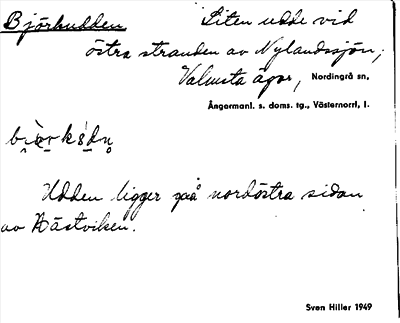 Björkudden Liten udde vid
östra stranden av Nylandssjön,
Valmsta ägor, Nordingrå sn,
Ångermanl. s. doms. tg., Västernorrl. l.
Udden ligger på nordöstra sidan
av Hästviken.
Sven Hiller 1949